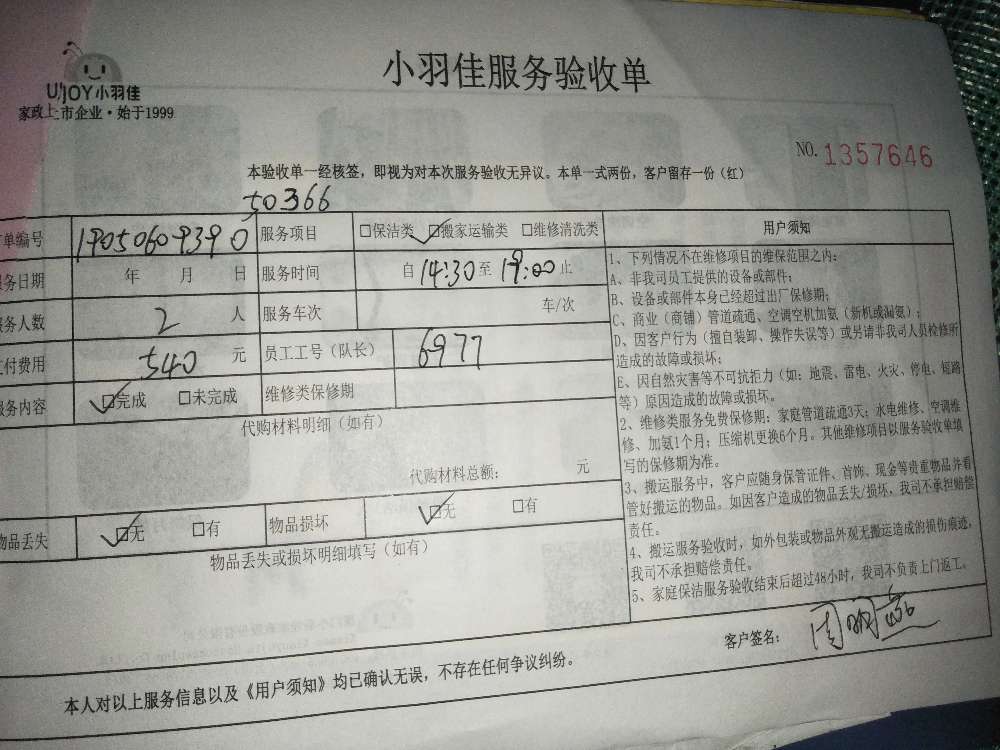 U'JOY小羽佳
家政上市企业·始于1999
小羽佳服务验收单
NO. 1357646
本验收单一经核签，即视为对本次服务验收无异议。本单一式两份，客户留存一份（红）
50366
单编号 1905060939 0 服务项目 □保洁类 ☑搬家运输类 □维修清洗类
务日期 年 月 日 服务时间 自 14:30 至 19:00 止
务人数 2 人 服务车次 车/次
付费用 540 元 员工工号（队长） 6977
务内容 ☑完成 □未完成 维修类保修期
代购材料明细（如有）
代购材料总额： 元
物品丢失 ☑无 □有 物品损坏 ☑无 □有
物品丢失或损坏明细填写（如有）
用户须知
1、下列情况不在维修项目的维保范围之内：
A、非我司员工提供的设备或部件；
B、设备或部件本身已经超过出厂保修期；
C、商业（商铺）管道疏通、空调空机加氨（新机或漏氨）；
D、因客户行为（擅自装卸、操作失误等）或另请非我司人员检修所
造成的故障或损坏；
E、因自然灾害等不可抗拒力（如：地震、雷电、火灾、停电、短路
等）原因造成的故障或损坏。
2、维修类服务免费保修期：家庭管道疏通3天；水电维修、空调维
修、加氨1个月；压缩机更换6个月。其他维修项目以服务验收单填
写的保修期为准。
3、搬运服务中，客户应随身保管证件、首饰、现金等贵重物品并看
管好搬运的物品。如因客户造成的物品丢失/损坏，我司不承担赔偿
责任。
4、搬运服务验收时，如外包装或物品外观无搬运造成的损伤痕迹，
我司不承担赔偿责任。
5、家庭保洁服务验收结束后超过48小时，我司不负责上门返工。
客户签名：
本人对以上服务信息以及《用户须知》均已确认无误，不存在任何争议纠纷。